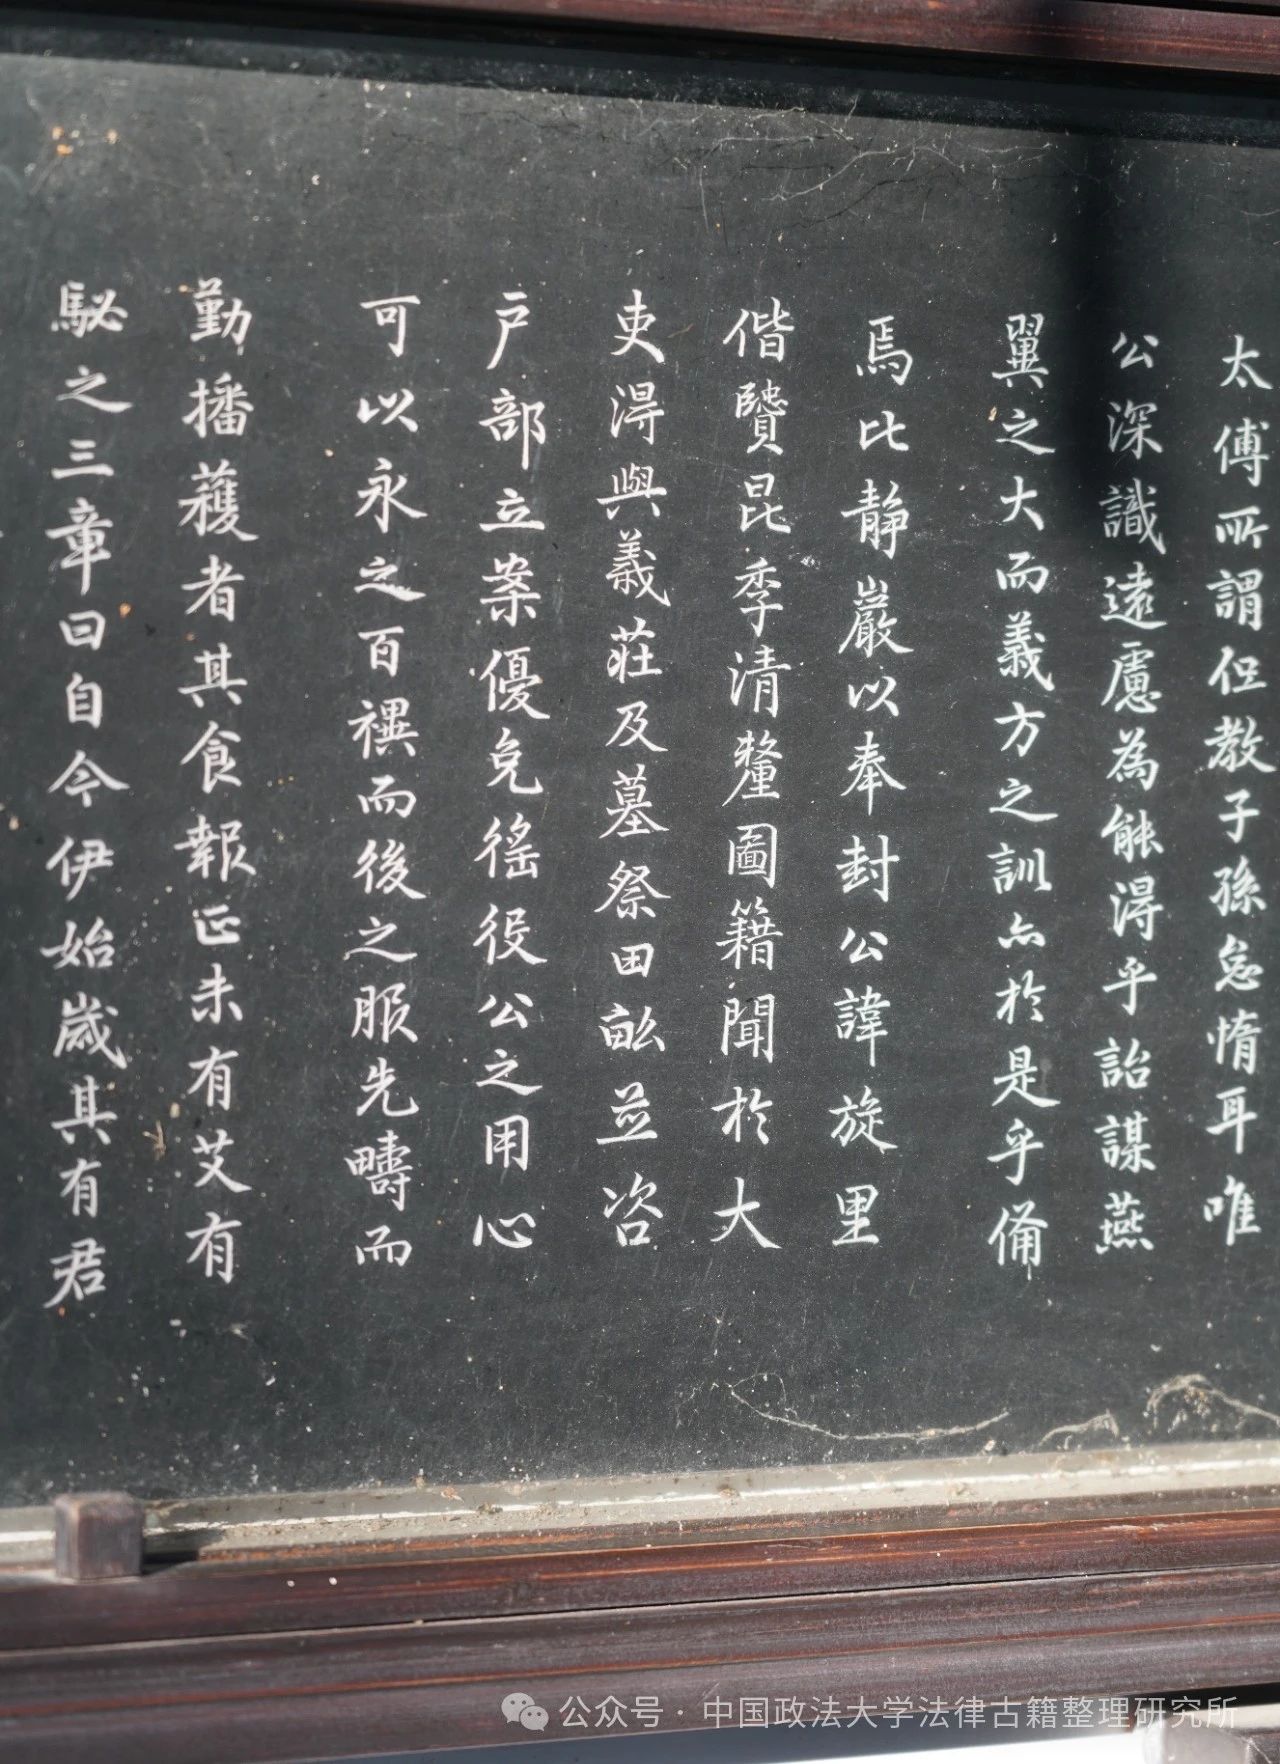 太傅所謂但教子孫怠惰耳唯
公深識遠慮為能得乎詒謀燕
翼之大而義方之訓亦於是乎備
焉比靜嚴以奉封公諱旋里
偕贒昆季清釐圖籍聞於大
吏得與義莊及墓祭田畝並咨
戶部立案優免徭役公之用心
可以永之百禩而後之服先疇而
勤播穫者其食報正未有艾有
駜之三章曰自今伊始歲其有君
公众号·中国政法大学法律古籍整理研究所